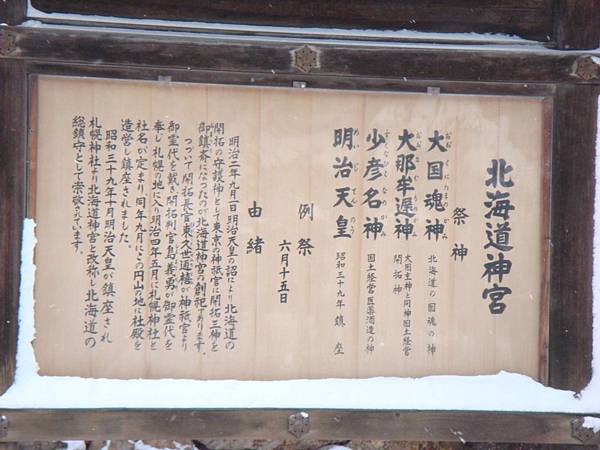 北海道神宮
祭神
大国魂神
おおくにたまのかみ
北海道の国魂の神
大那牟遅神
おおなむちのかみ
大国主神と同神国土経営
開拓神
少彦名神
すくなひこなのかみ
国土経営医薬酒造の神
明治天皇
めいじてんのう
昭和三十九年鎮座
例祭
六月十五日
由緒
明治二年九月一日明治天皇の詔により北海道の
開拓の守護神として東京の神祇官に開拓三神を
御鎮斎になったのが北海道神宮の創祀であります。
つづいて開拓長官東久世通禧が神祇官より
御霊代を戴き開拓判官島義勇が御霊代を
奉じ札幌の地に入り明治四年五月に札幌神社と
社名が定まり、同年九月にこの円山の地に社殿を
造営し鎮座されました。
昭和三十九年十月明治天皇が鎮座され
札幌神社より北海道神宮と改称し北海道の
総鎮守として崇敬されています。